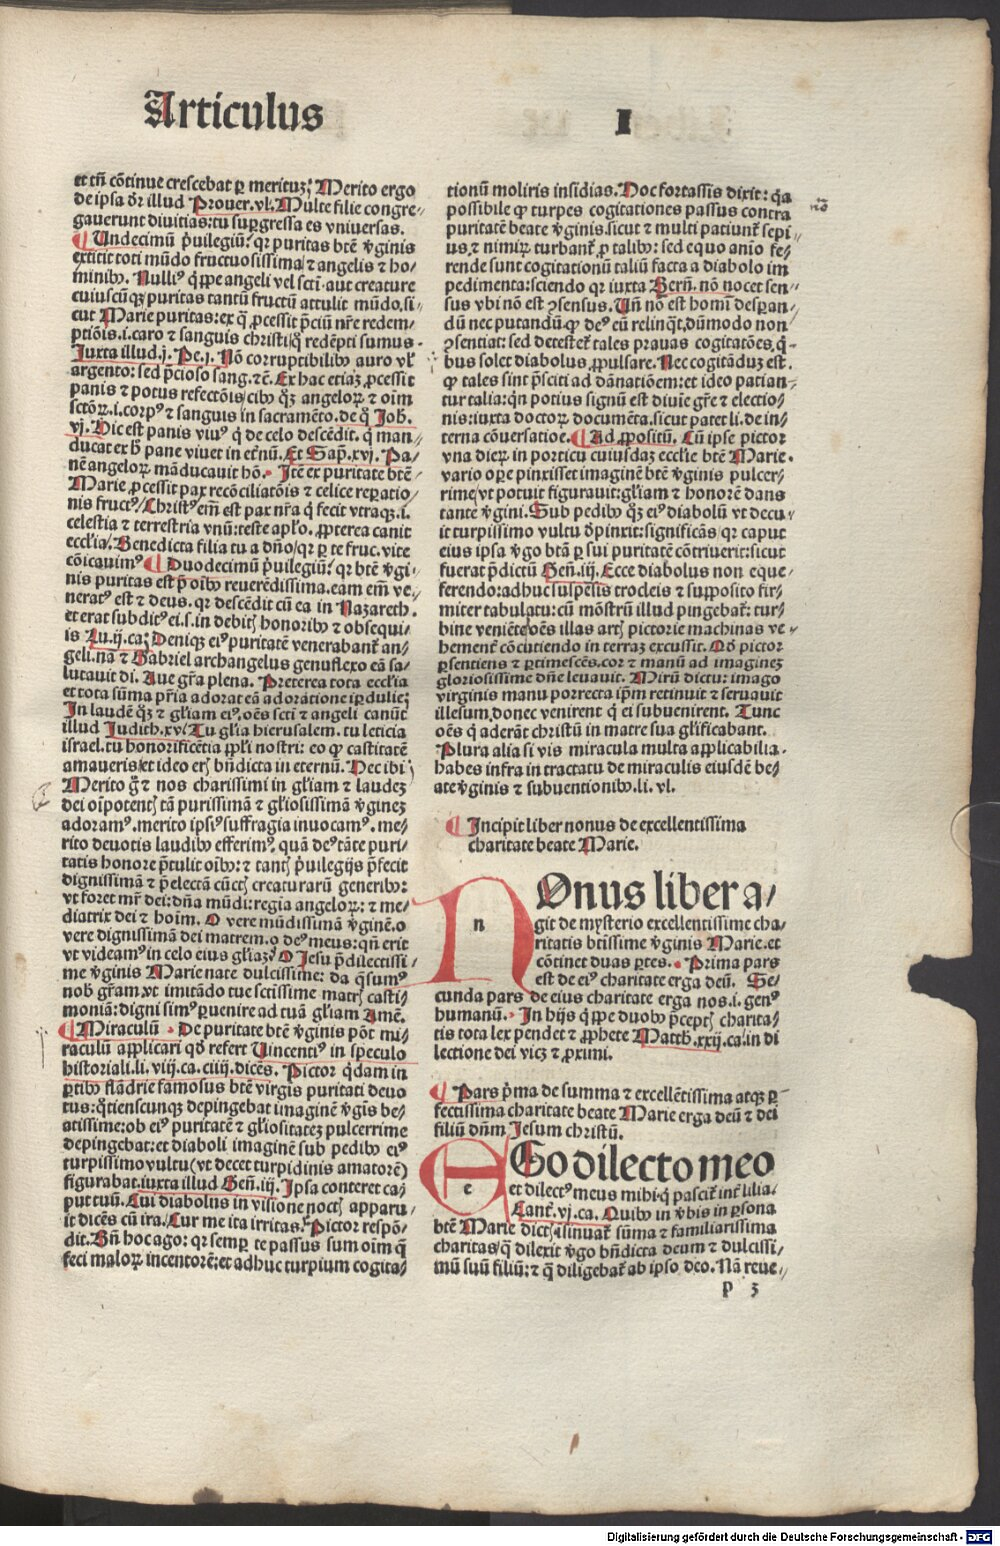 Articulus I
et tñ cõtinue crescebat ꝑ merituʒ. Merito ergo
de ipsa dr̃ illud Prouer. vl. Multe filie congre⸗
gauerunt diuitias: tu suꝑgressa es vniuersas.
¶ Undecimũ p̃uilegiũ: qꝛ puritas btẽ v̾ginis
extitit toti mũdo fructuosissima/ ⁊ angelis ⁊ ho⸗
minibꝰ. Nulliꝰ q̃ppe angeli vel scti aut creature
cuiuscũqʒ puritas tantũ fructũ attulit mũdo. si⸗
cut Marie puritas: ex q̃ ꝓcessit p̃ciũ nr̃e redem⸗
ptiõis. i. caro ⁊ sanguis christi/ q̃ redẽpti sumus.
Juxta illud. j. Pe. j. Nõ corruptibilibꝰ auro vl̾
argento: sed p̃cioso sang. ⁊č. Ex hac etiaʒ ꝓcessit
panis ⁊ potus refectõis/ cibꝰ q̃ʒ angeloꝝ ⁊ oĩm
sctõꝝ. i. corpꝰ ⁊ sanguis in sacramẽto. de q̃ Joh.
vj. Hic est panis viuꝰ q̃ de celo descẽdit. q̃ man⸗
ducat ex h̾ pane viuet in et̾nũ. Et Sap. xvj. Pa⸗
nẽ angeloꝝ mãducauit hõ. Itẽ ex puritate btẽ⸗
Marie ꝓcessit pax recõciliatõis ⁊ celice reꝑatio⸗
nis fructꝰ/ Christꝰ em̃ est pax nr̃a q̃ fecit vtraqʒ. i.
celestia ⁊ terrestria vnũ: teste apl̾o. ꝓpterea canit
eccl̾ia/. Benedicta filia tu a dño/ qꝛ ꝑ te fruc. vite
cõicauimꝰ ¶ Duodecimũ p̃uilegiũ: qꝛ btẽ v̾gi⸗
nis puritas est p̃ oĩbꝰ reuerẽdissima. eam em̃ ve⸗
neratꝰ est ⁊ deus. qꝛ descẽdit cũ ea in Nazareth.
et erat subditꝰ ei. s. in debitꝭ honoribꝰ ⁊ obsequi⸗
is Lu. ij. ca. Deniqʒ eiꝰ puritatẽ venerabant̾ an⸗
geli. na ⁊ Gabriel archangelus genuflexo eã sa⸗
lutauit di. Aue gr̃a plena. Preterea tota eccl̾ia
et tota sũma pr̃ia adorat eã adoratione iꝑdulie:
In laudẽ q̃ʒ ⁊ gl̾iam eiꝰ. oẽs scti ⁊ angeli canũt
illud Judith. xv. Tu gl̾ia hierusalem. tu leticia
israel. tu honorificẽtia ppl̾i nostri: eo qꝫ castitatẽ
amaueris/ et ideo eris bñdicta in eternũ. Hec ibi.
Merito g̾ ⁊ nos charissimi in gl̾iam ⁊ laudeʒ
dei oĩpotentꝭ tã purissimã ⁊ gl̾iosissimã v̾gineʒ
adoramꝰ. merito ipsiꝰ suffragia inuocamꝰ. me⸗
rito deuotis laudibꝰ efferimꝰ. quã deꝰ tãte puri⸗
tatis honore p̃tulit oĩbꝰ: ⁊ tantꝭ p̃uilegijs p̃fecit
dignissimã ⁊ p̃electã cũctꝭ creaturarũ generibꝰ:
vt foret mr̃ dei: dña mũdi: regia angeloꝝ: ⁊ me⸗
diatrix dei ⁊ hoĩm. O vere mũdissimã v̾ginẽ. o
vere dignissimã dei matrem. o deꝰ meus: qñ erit
vt videamꝰ in celo eius gl̾iaʒ: O Jesu p̃dilectissi⸗
me v̾ginis Marie nate dulcissime: da q̃sumꝰ
nob̾ gr̃am. vt imitãdo tue sctissime matrꝭ casti⸗
moniã: digni simꝰ ꝑuenire ad tuã gl̾iam Amẽ.
¶ Miraculũ. De puritate btẽ v̾ginis põt mi⸗
raculũ applicari qd̾ refert Vincentiꝰ in speculo
historiali. li. viij. ca. ciiij. dicẽs. Pictor q̃dam in
ꝑtibꝰ flãdrie famosus btẽ virgis puritati deuo
tus: q̃tienscunqʒ depingebat imaginẽ v̾gis be⸗
atissime: ob eiꝰ puritatẽ ⁊ gl̾iositateʒ pulcerrime
depingebat: et diaboli imaginẽ sub pedibꝰ eiꝰ
turpissimo vultu (vt decet turpidinis amatorẽ)
figurabat. iuxta illud Geñ. iij. Ipsa conteret ca⸗
put tuũ. Cui diabolus in visione noctꝭ apparu⸗
it dicẽs cũ ira. Cur me ita irritas. Pictor respõ⸗
dit. Bñ hoc ago: qꝛ semꝑ te passus sum oĩm q̃
feci maloꝝ incentorẽ: et adhuc turpium cogita⸗
tionũ moliris insidias. Hoc fortassis dixit: q̃a
possibile qꝫ turpes cogitationes passus contra
puritatẽ beate v̾ginis. sicut ⁊ multi patiunt̾ sepi⸗
us. ⁊ nimiꝝ turbant̾ ꝓ talibꝰ: sed equo anĩo fe⸗
rende sunt cogitationũ taliũ facta a diabolo im
pedimenta: sciendo qꝛ iuxta Berñ. nõ nocet sen⸗
sus vbi nõ est ꝯsensus. Uñ nõ est homĩ desꝑan⸗
dũ nec putandũ qꝫ deꝰ eũ relinq̃t. dũmodo non
ꝯsentiat: sed detestet̾ tales prauas cogitatões. q̃⸗
bus solet diabolus ꝓpulsare. Nec cogitãduʒ est.
qꝫ tales sint p̃sciti ad dãnatiõem: et ideo patian⸗
tur talia: qñ potius signũ est diuĩe gr̃e ⁊ electio⸗
nis: iuxta doctoꝝ documẽta. sicut patet li. de in⸗
terna cõuersatiõe. ¶ Ad ꝓpositũ. Cũ ipse pictor
vna dieꝝ in porticu cuiusdaʒ eccl̾ie btẽ Marie.
vario oꝑe pinxisset imaginẽ btẽ v̾ginis pulcer⸗
rime/ vt potuit figurauit: gl̾iam ⁊ honorẽ dans
tante v̾gini. Sub pedibꝰ q̃ʒ eiꝰ diabolũ vt decu⸗
it turpissimo vultu dp̃inxit: significãs/ qꝛ caput
eius ipsa v̾go btã ꝑ sui puritatẽ cõtriuerit: sicut
fuerat p̃dictũ Geñ. iij. Ecce diabolus non eque⸗
ferendo: adhuc suspẽsis trocleis ⁊ supposito fir⸗
miter tabulatu: cũ mõstrũ illud pingebat̾: tur⸗
bine veniẽte/ oẽs illas artꝭ pictorie machinas ve⸗
hement̾ cõcutiendo in terraʒ excussit. Qd̾ pictor
ꝑsentiens ⁊ ꝑtimescẽs. cor ⁊ manũ ad imagineʒ
gloriosissime dñe leuauit. Mirũ dictu: imago
virginis manu porrecta ip̃m retinuit ⁊ seruauit
illesum. donec venirent q̃ ei subuenirent. Tunc
oẽs q̃ aderãt christũ in matre sua gl̾ificabant.
Plura alia si vis miracula multa applicabilia.
habes infra in tractatu de miraculis eiusdẽ be⸗
ate v̾ginis ⁊ subuentionibꝰ. li. vl.
¶ Incipit liber nonus de excellentissima
charitate beate Marie.
NOnus liber a⸗
git de mysterio excellentissime cha⸗
ritatis btissime v̾ginis Marie. et
cõtinet duas ꝑtes. Prima pars
est de eiꝰ charitate erga deũ. Se⸗
cunda pars de eius charitate erga nos. i. genꝰ
humanũ. In hijs q̃ppe duobꝰ p̃ceptꝭ charita⸗
tis tota lex pendet ⁊ ꝓphete Matth. xxij. ca. in di
lectione dei vicʒ ⁊ ꝓximi.
¶ Pars p̃ma de summa ⁊ excellẽtissima atqʒ ꝑ⸗
fectissima charitate beate Marie erga deũ ⁊ dei
filiũ dñm Jesum christũ.
EGo dilecto meo
et dilectꝰ meus mihi. q̃ pascit̾ int̾ lilia.
Cant̾. vj. ca. Quibꝰ in v̾bis in ꝑsona
btẽ Marie dictꝭ isinuat̾ sũma ⁊ familiarissima
charitas/ q̃ dilexit v̾go bñdicta deum ⁊ dulcissi⸗
mũ suũ filiũ: ⁊ q̃ diligebat̾ ab ipso deo. Nã reue⸗
p 3
Digitalisierung gefördert durch die Deutsche Forschungsgemeinschaft - DFG